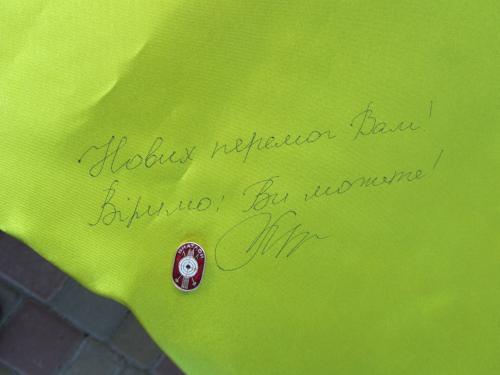 Нових перемог Вам!
Віримо! Ви можете!
БІАТЛОН